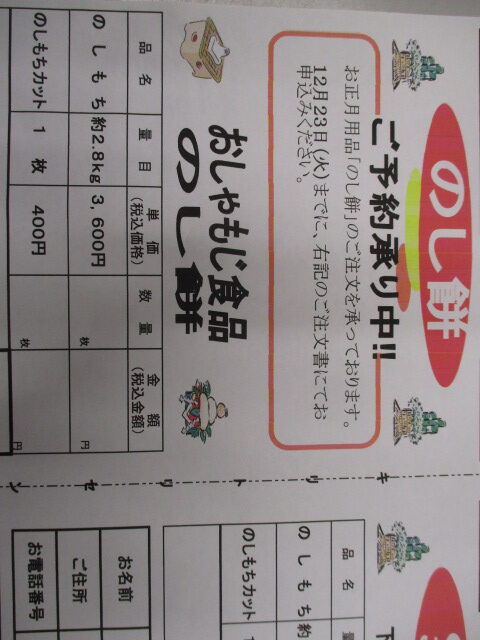 のし餅
ご予約承り中!!
お正月用品「のし餅」のご注文を承っております。
12月23日(火)までに、右記のご注文書にてお
申込みください。
おしゃもじ食品
のし餅
品名 量目 単価(税込価格) 数量 金額(税込金額)
のしもち 約2.8kg 3,600円 枚 円
のしもちカット 1枚 400円 枚 円
キリトリセン
品名
のしもち 約
のしもちカット 1
お名前
ご住所
お電話番号